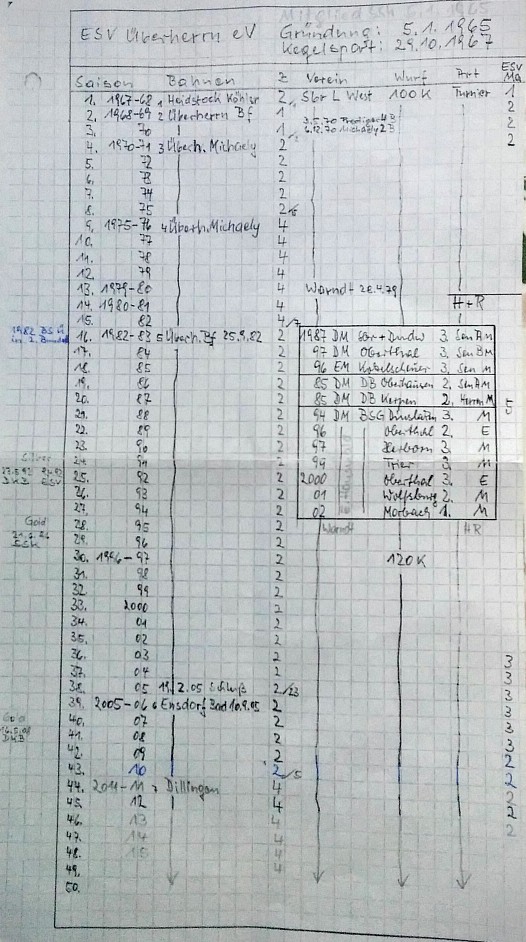 Mitglied SSK 6.1.1965
ESV Überherrn eV Gründung: 5.1.1965
Kegelsport: 29.10.1967
Saison Bahnen Z Verein Wurf Art ESV Ma.
1. 1967-68 1 Heidstock Köhler 2 Sbr L West 100K Turnier 1
2. 1968-69 2 Überherrn Bf 1 2
3. 70 1 3.5.70 Prediger 4B 2
6.12.70 Michaely 2B
4. 1970-71 3 Überh. Michaely 2 2
5. 72 2
6. 73 2
7. 74 2
8. 75 2
9. 1975-76 4 Überh. Michaely 4
10. 77 4
11. 78 4
12. 79 4
13. 1979-80 4 Warndt 28.4.79
14. 1980-81 4 H+R
15. 82 4
1982 BSG
16. 1982-83 5 Überh. Bf 25.9.82 2 1987 DM 3. Sen A M
17. 84 2 97 DM Oberthal 3. Sen B M
18. 85 2 96 EM 3. Sen M
19. 86 2 85 DM DB Oberhausen 2. Sen A M
20. 87 2 85 DM DB Kerpen 2. Herren M
21. 88 2 94 DM BSG 3. M
22. 89 2 96 Oberthal 2. E
23. 90 2 97 Herborn 3. M
24. 91 2 99 Trier 3. M
25. 92 2 2000 Oberthal 3. E
26. 93 2 01 Wolfsburg 2. M
27. 94 2 02 Morbach 1. M
Gold
28. 95 2 Warndt HR
29. 96 2
30. 1996-97 2 120K
31. 98 2
32. 99 2
33. 2000 2
34. 01 2
35. 02 2
36. 03 2 3
37. 04 2 3
38. 05 19.2.05 Schluß 2/23 3
39. 2005-06 6 Ensdorf 10.9.05 2 3
Gold
40. 07 2 3
16.5.08
DKB
41. 08 2 3
42. 09 2 2
43. 10 2/5 2
44. 2011-11 7 Dillingen 4 2
45. 12 4 2
46. 13 4 2
47. 14 4
48. 15 4
49. 4
50.